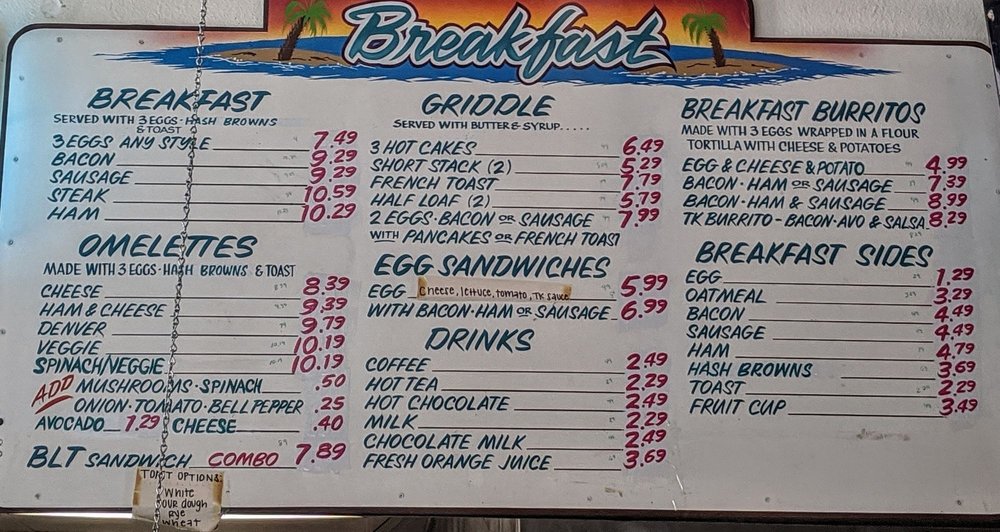 Breakfast
BREAKFAST
SERVED WITH 3 EGGS·HASH BROWNS
& TOAST
3 EGGS ANY STYLE 7.49
BACON 9.29
SAUSAGE 9.29
STEAK 10.59
HAM 10.29
OMELETTES
MADE WITH 3 EGGS·HASH BROWNS & TOAST
CHEESE 8.39
HAM & CHEESE 9.39
DENVER 9.79
VEGGIE 10.19
SPINACH/VEGGIE 10.19
ADD MUSHROOMS·SPINACH .50
ONION·TOMATO·BELL PEPPER .25
AVOCADO 1.29 CHEESE .40
BLT SANDWICH COMBO 7.89
TOAST OPTIONS:
White
SOUR dough
Rye
Wheat
GRIDDLE
SERVED WITH BUTTER & SYRUP.....
3 HOT CAKES 6.49
SHORT STACK (2) 5.29
FRENCH TOAST 7.79
HALF LOAF (2) 5.79
2 EGGS·BACON OR SAUSAGE 7.99
WITH PANCAKES OR FRENCH TOAST
EGG SANDWICHES
EGG Cheese, lettuce, tomato, TK sauce 5.99
WITH BACON·HAM OR SAUSAGE 6.99
DRINKS
COFFEE 2.49
HOT TEA 2.29
HOT CHOCOLATE 2.49
MILK 2.29
CHOCOLATE MILK 2.49
FRESH ORANGE JUICE 3.69
BREAKFAST BURRITOS
MADE WITH 3 EGGS WRAPPED IN A FLOUR
TORTILLA WITH CHEESE & POTATOES
EGG & CHEESE & POTATO 4.99
BACON·HAM OR SAUSAGE 7.39
BACON·HAM & SAUSAGE 8.99
TK BURRITO - BACON·AVO & SALSA 8.29
BREAKFAST SIDES
EGG 1.29
OATMEAL 3.29
BACON 4.49
SAUSAGE 4.49
HAM 4.79
HASH BROWNS 3.69
TOAST 2.29
FRUIT CUP 3.49